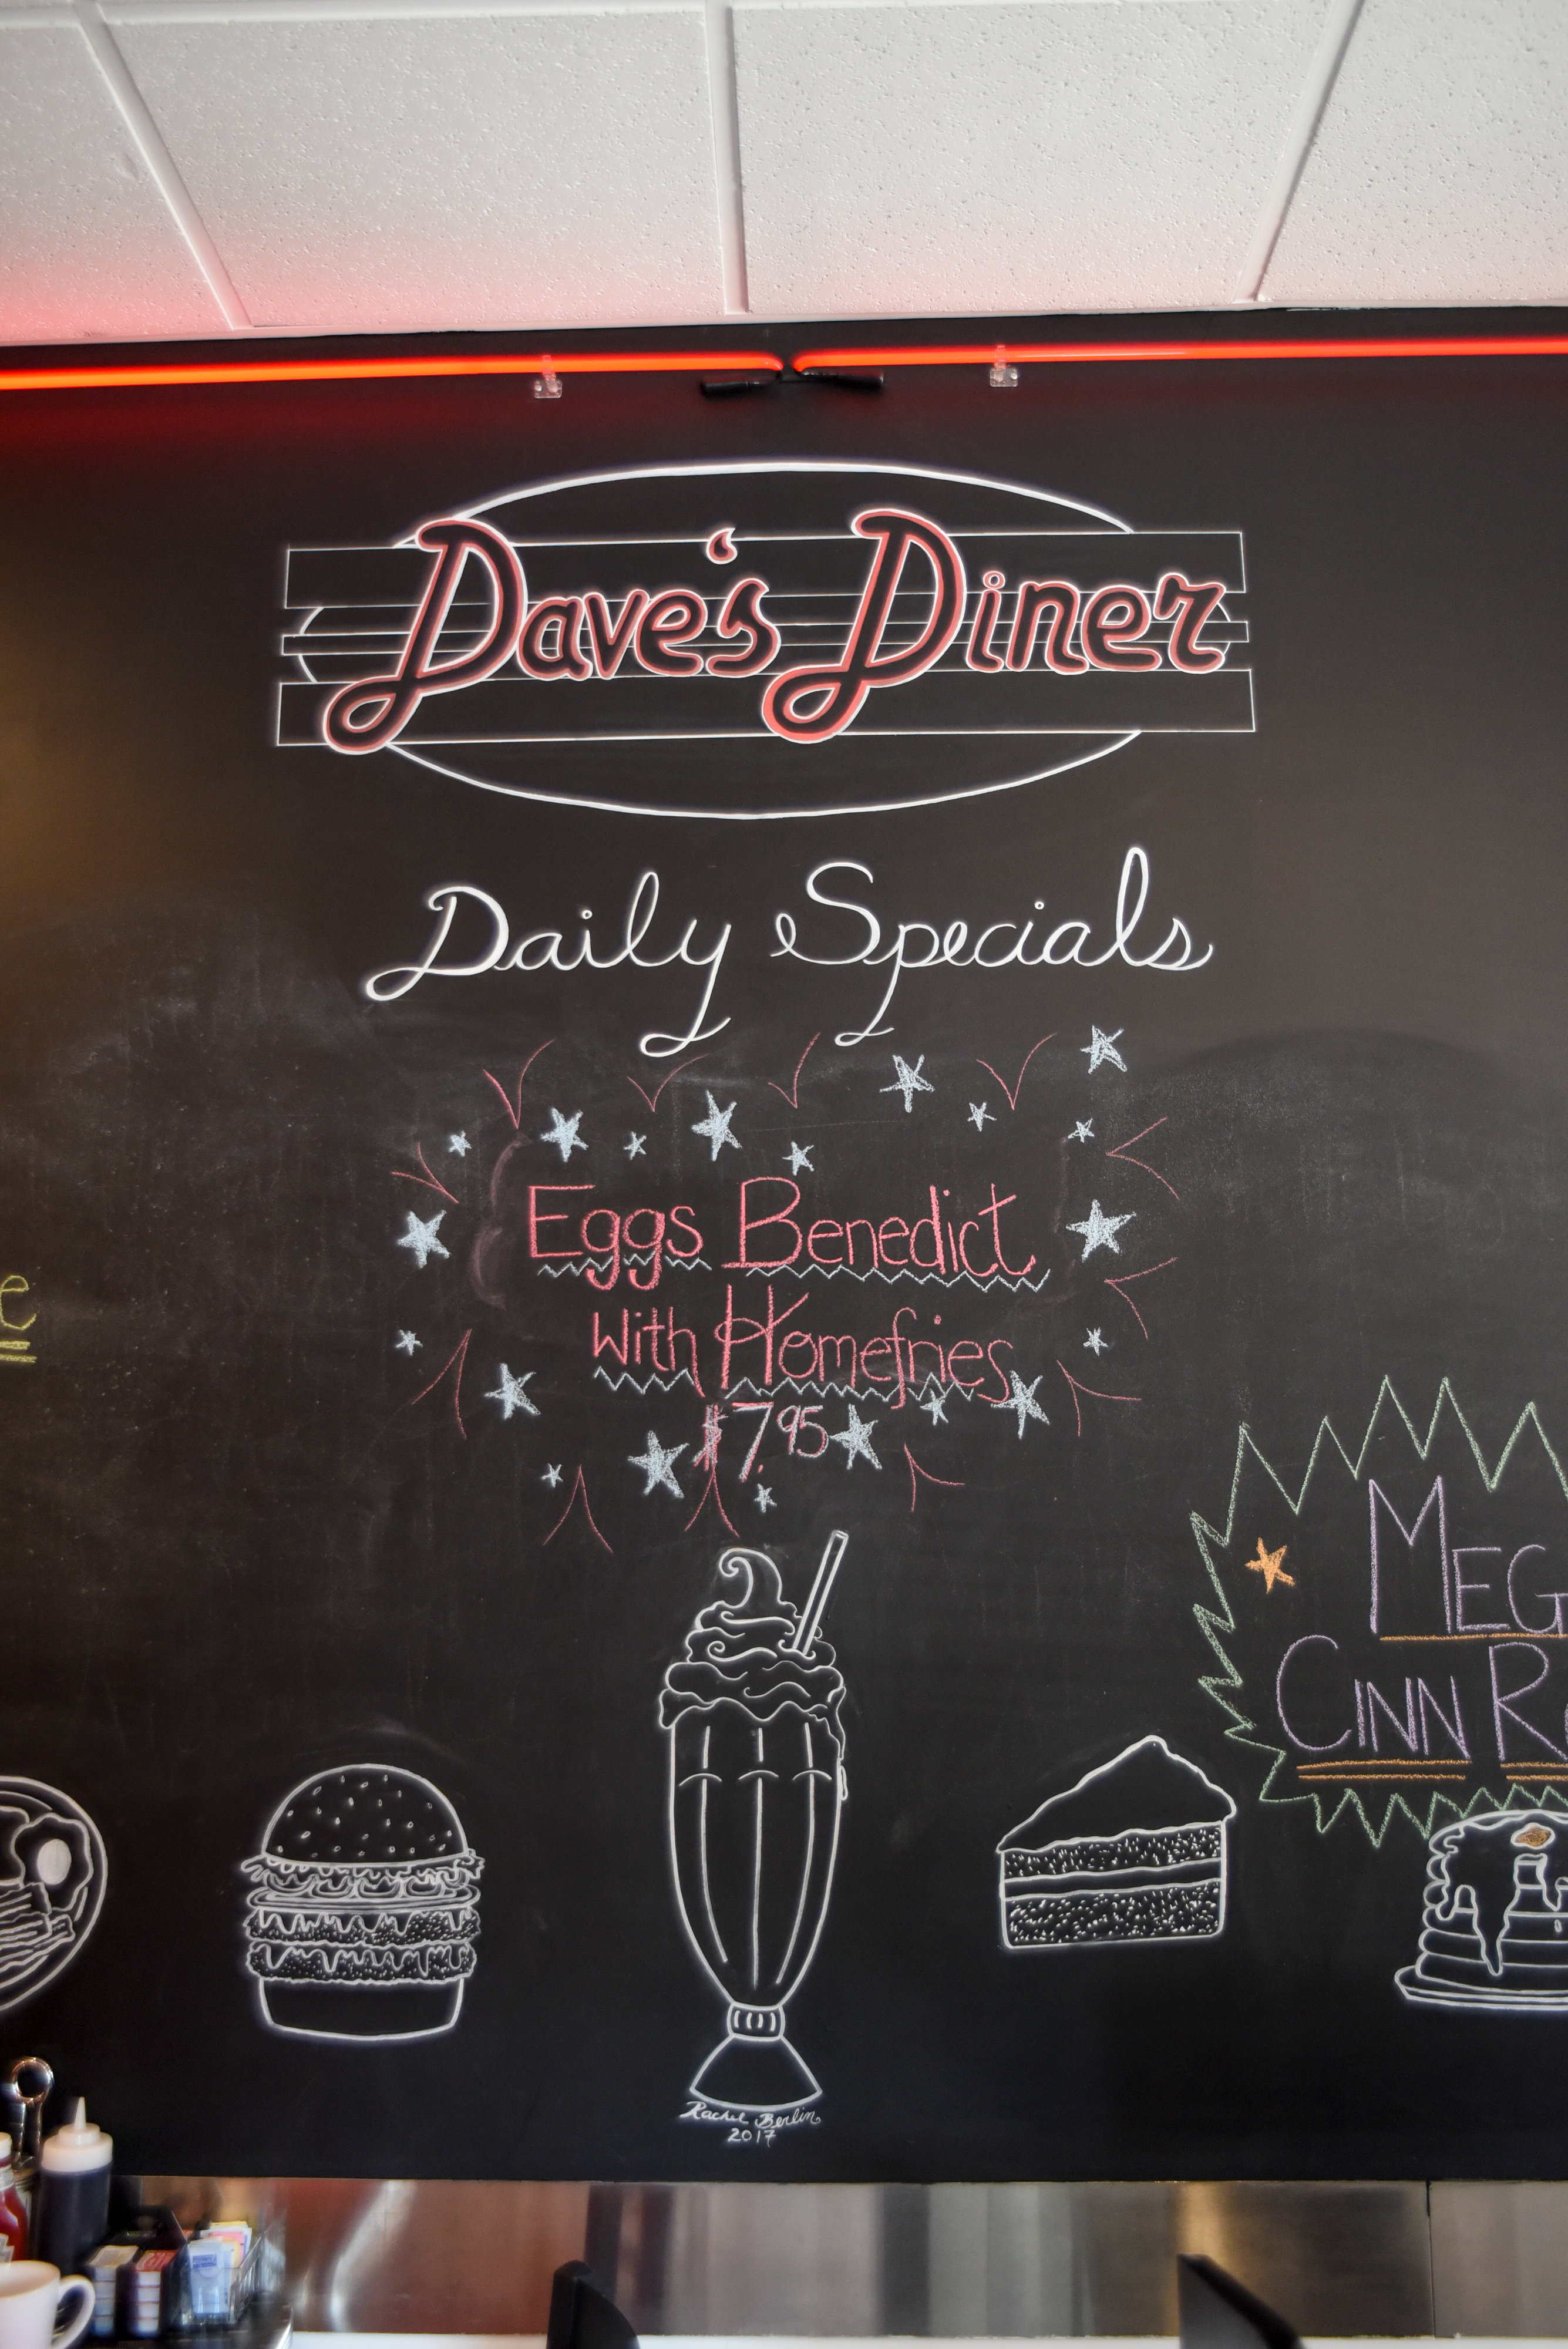 Dave's Diner
Daily Specials
Eggs Benedict
With Homefries
$7.95
e
MEG
CINN R
Rachel Berlin
2017